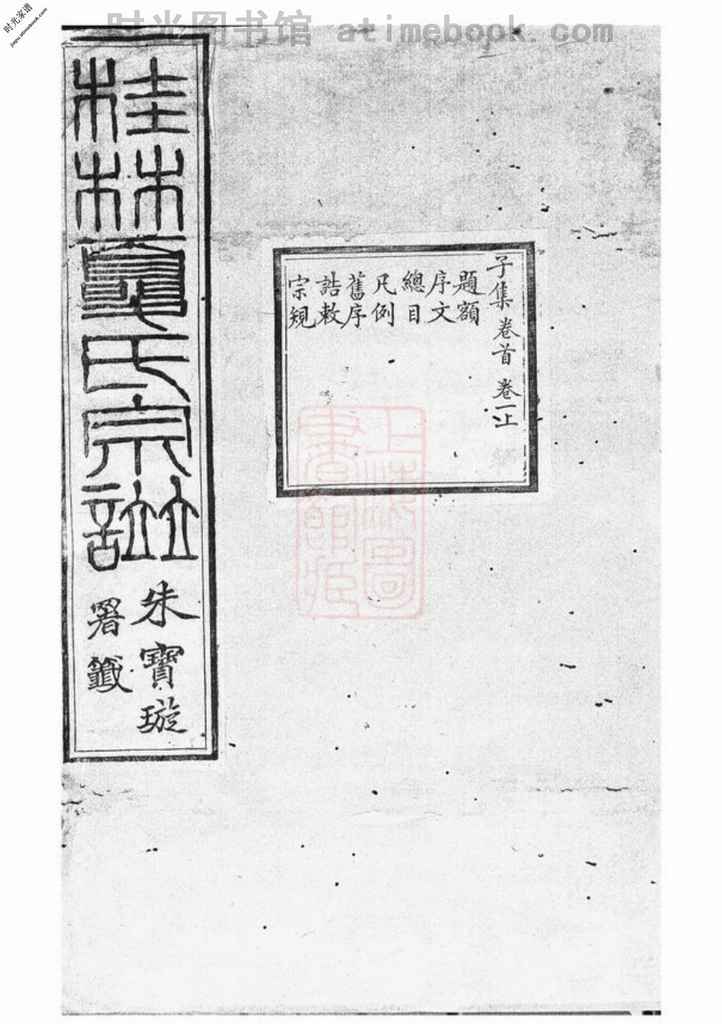 时光家谱
jiapu.atimebook.com
时光图书馆 atimebook.com
子集 卷首 卷一上
題額
序文
總目
凡例
舊序
誥敕
宗規
上海圖
書館藏
桂林夏氏宗譜
朱寶璇
署籤